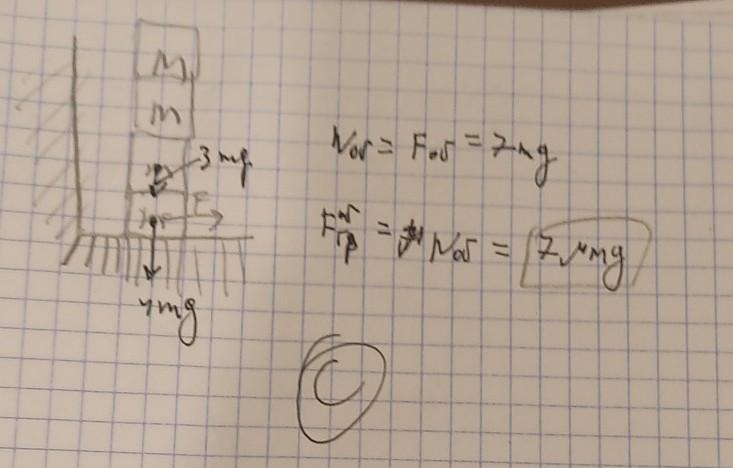 M
m
3 mg
F
4mg
Nоб = Fоб = 7mg
Fтр^об = μ Nоб = 7μmg
C